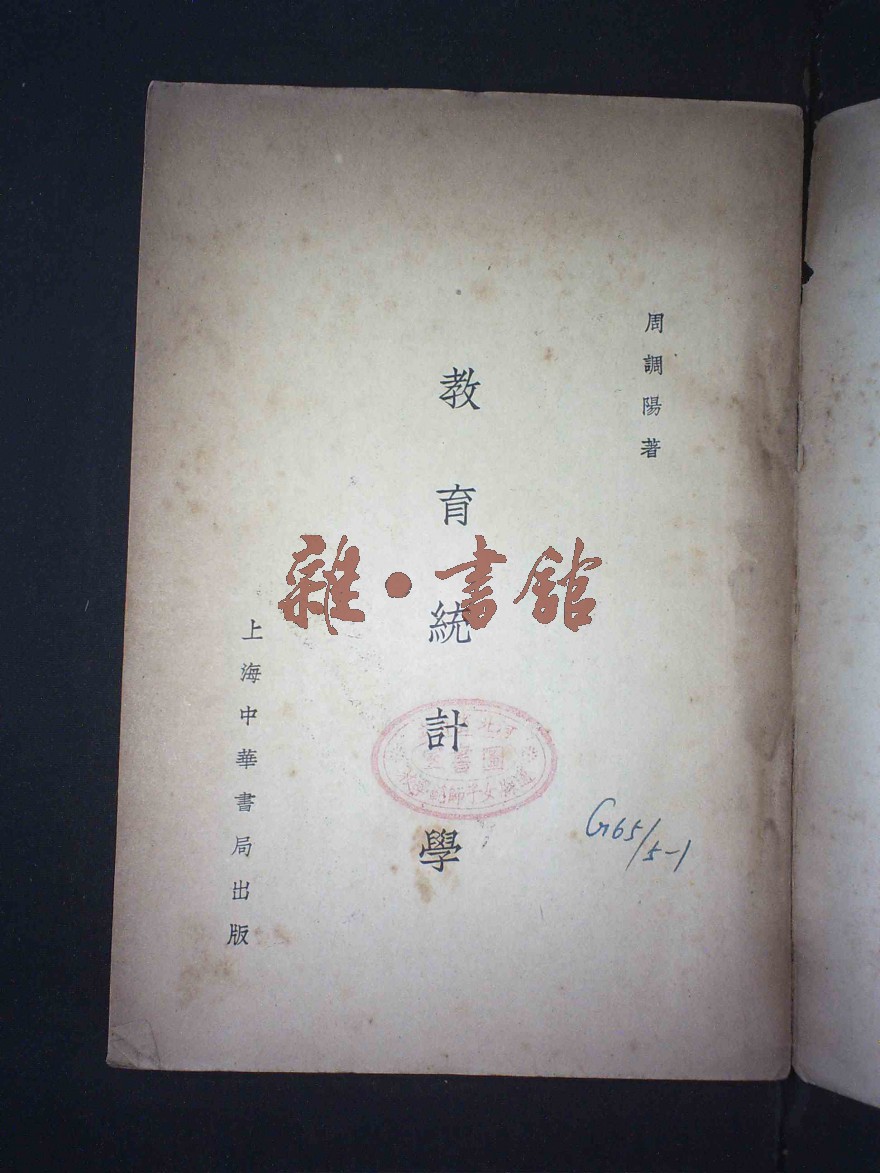 周調陽著
教育統計學
上海中華書局出版
雜·書館
圖書室
G165/5-1